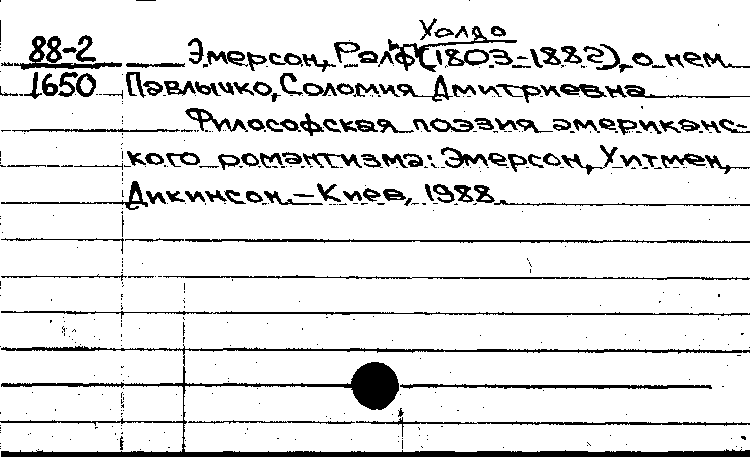 Уолдо
88-2 Эмерсон, Ралф (1803-1882), о нем.
1650 Павлычко, Соломия Дмитриевна
Философская поэзия американс-
кого романтизма: Эмерсон, Уитмен,
Дикинсон.-Киев, 1988.